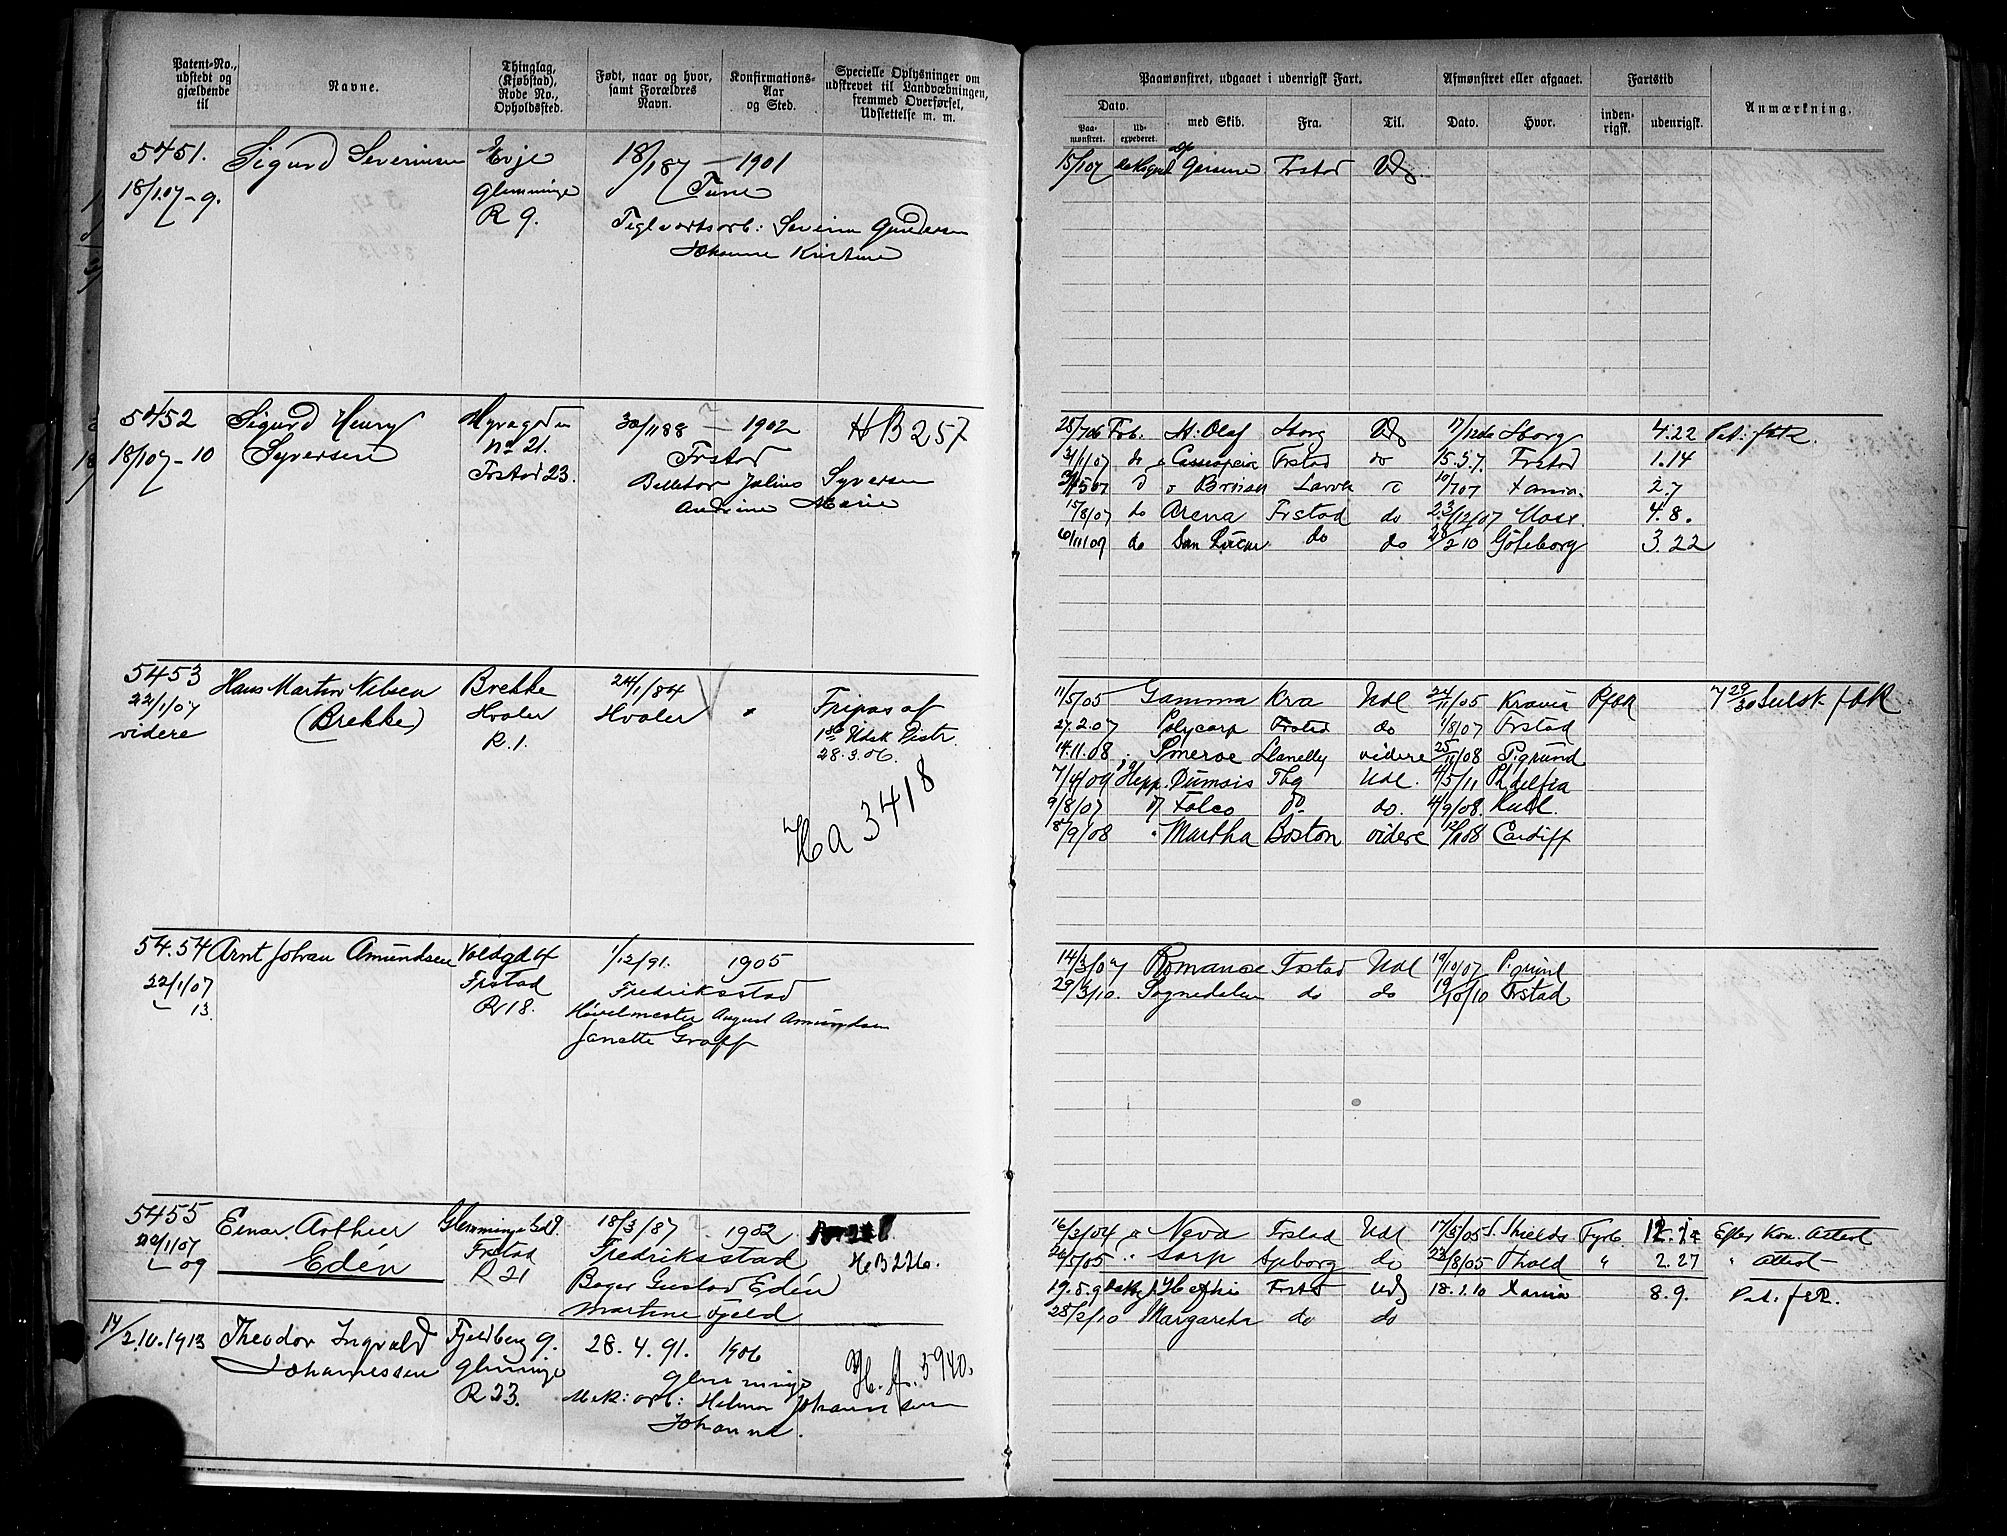 Patent-No., udstedt og gjældende til
Navne.
Thinglag, (Kjøbstad), Rode No., Opholdssted.
Født, naar og hvor, samt Forældres Navn.
Konfirmations-Aar og Sted.
Specielle Oplysninger om udskrevet til Landvæbningen, fremmed Overførsel, Udslettelse m. m.
5451. Sigurd Severinsen Evje 18/1 87 — 1901
18/1.07-9. Glemminge Tune
R 9. Teglverksarb: Severin Gundersen
Johanne Kristine
5452 Sigurd Henry 1902 HB257
18/1 07-10 Syversen No 21. Frstad
Frstad 23. Julius Syversen
Andrine Marie
5453 Hans Martin Nilsen Brekke 24/1/84
22/1/07 (Brekke) Hvaler Hvaler Fripas af
videre R.1. 1ste Udsk Distr.
28.3.06.
Ha 3418
54.54 Arnt Johan Amundsen Voldgd 4 1/12/91. 1905
22/1/07 Frstad Fredriksstad
13. R 18. Høvelmester August Amundsen
Janette Graff
5455 Einar Arthur Glemminge 18/3/87 - 1902
22/1/07 Edén Frstad Fredriksstad HB226.
09 R 21 Bager Gustav Edén
Martine Fjeld
14/2.10.1913 Theodor Ingvald Fjeldberg 9. 28.4.91. 1906
Johannessen Glemminge Glemminge H.A. 5940.
R 23. Mek: arb: Helmer Johannesen
Johanne.
Paamønstret, udgaaet i udenrigsk Fart.
Afmønstret eller afgaaet.
Fartstid
Anmærkning.
Dato.
Paamønstret.
Udexpederet.
med Skib.
Fra.
Til.
Dato.
Hvor.
indenrigsk.
udenrigsk.
15/1 07 Frstad Udl
28/7 06 Frb. St: Olaf Sborg Udl 17/12 06 Sborg 4.22
31/1/07 do Cassiopeia Frstad do 15.3.7. Frstad 1.14
Larvik 10/7 07 Xania. 2.7
15/8/07 do Arena Frstad do 23/12/07 Moss. 4.8.
6/11 09 do do do 28/2 10 Göteborg 3.22
11/5/05 Gamma Kra Udl 24/11/05 Kravia
27.2.07 Polycarp Frstad do 1/8/07 Frstad
14.11.08 Smeroe Llanelly videre 25/11/08 P.grund
7/4/09 Hepp. Dumois Tbg Udl. 4/5/11 Phdelfia
9/8/07 Folco do. 4/9/08.
8/9/08 Martha Boston videre 12/11 08 Cardiff
14/3/07 Romanoe Frstad Udl 19/10/07 P.grund
29/3/10. Sognedalen do do 19/10/10 Frstad
16/2/04 Neva Frstad Udl 17/3/05 S. Shields Fyrb. Efter Kon. Attest
26/5/05 Sarp Spborg do 23/8/05 Thold " 2.27 " Attest
19.5.9 Frstd Udl 18.1.10 Xania 8.9.
28/2/10 Margareta do do